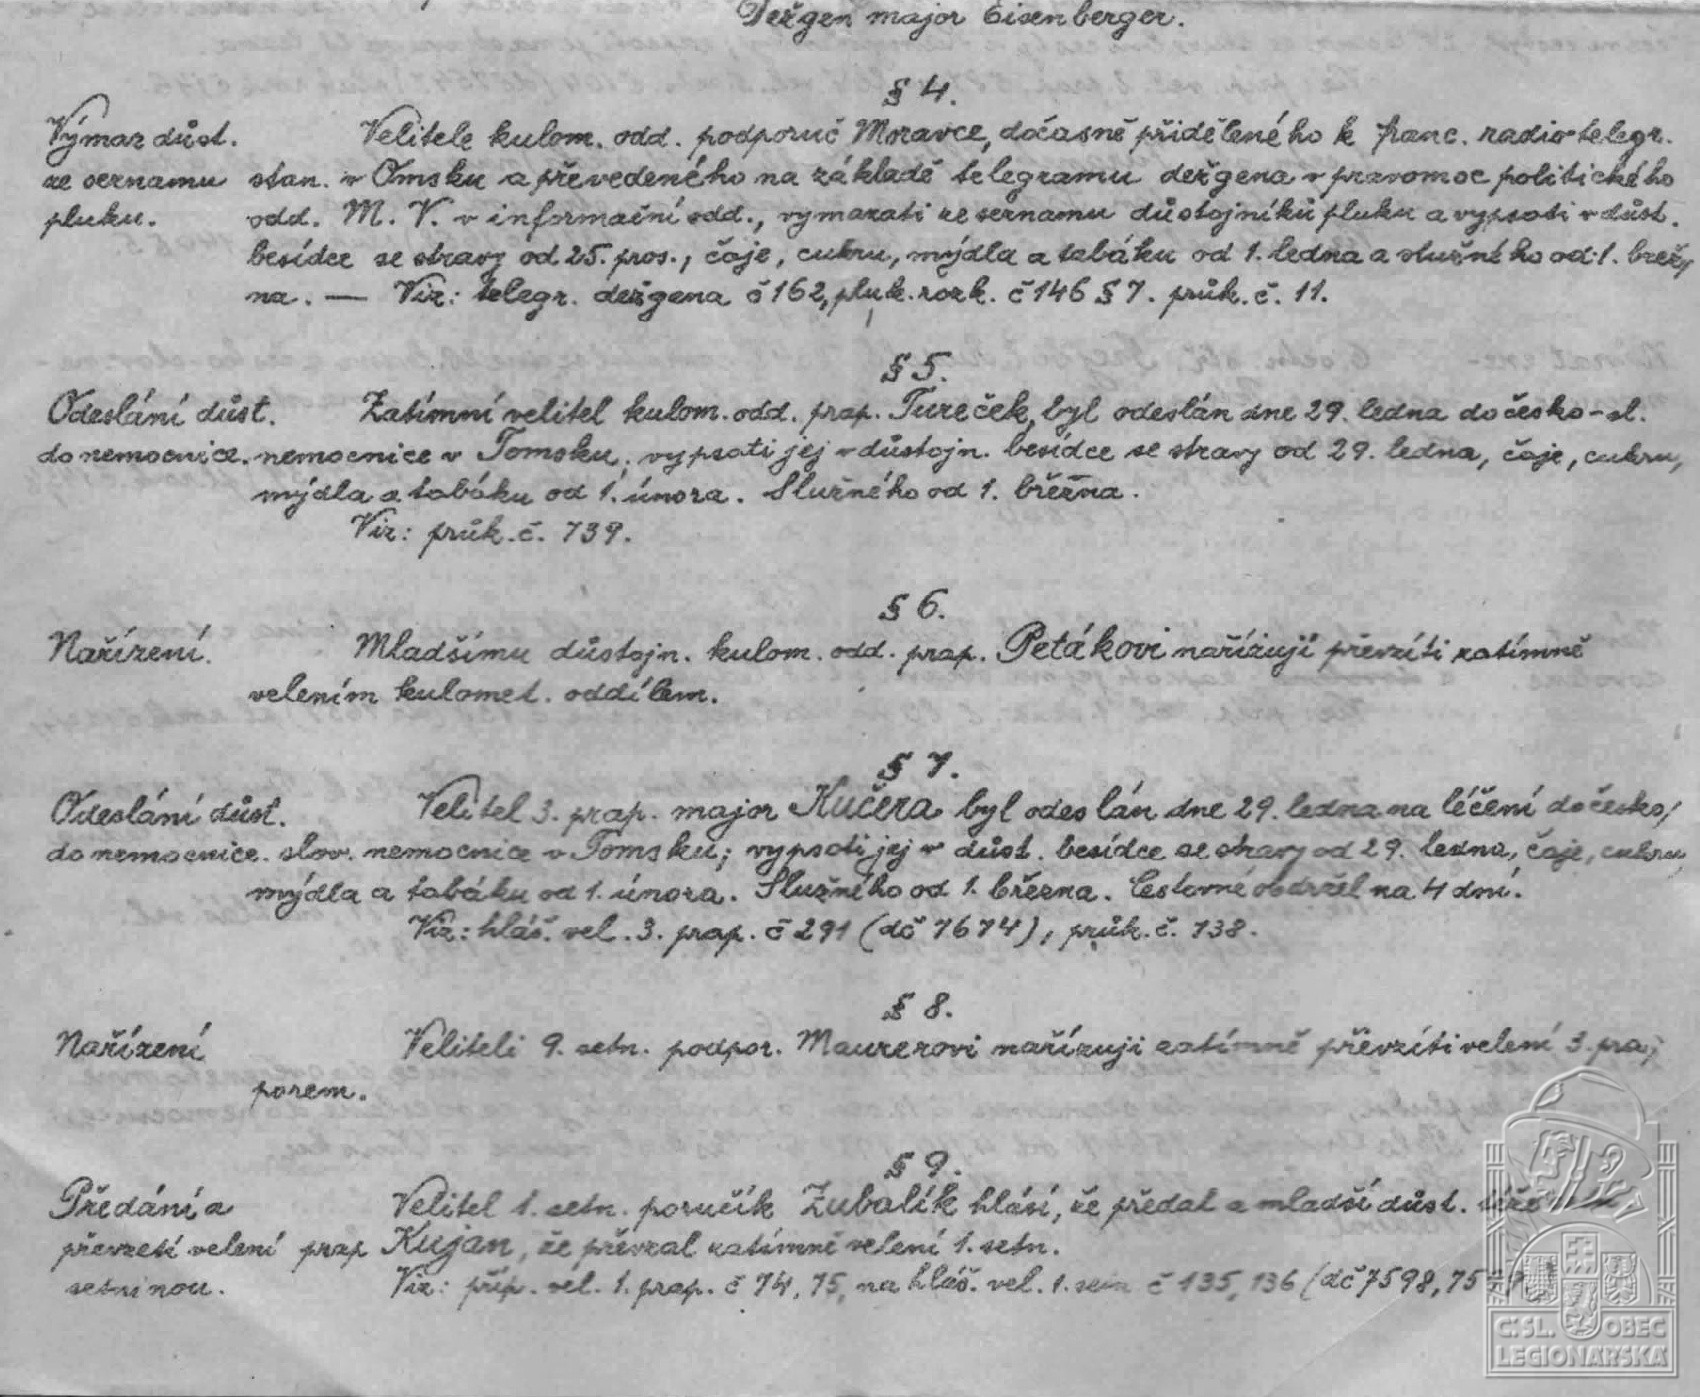 Dežgen major Eisenberger.
§ 4.
Výmaz důst. Velitele kulom. odd. podporuč Moravce, dočasně přiděleného k franc. radiotelegr.
ze seznamu stan. v Omsku a převedeného na základě telegramu dežgena v pravomoc politického
pluku. odd. M. V. v informační odd., vymazati ze seznamu důstojníků pluku a vypsati v důst.
besídce se stravy od 25. pros., čaje, cukru, mýdla a tabáku od 1. ledna a služného od 1. břez
na. — Viz: telegr. dežgena č 162, pluk. rozk. č 146 § 7. průk. č. 11.
§ 5.
Odeslání důst. Zatímní velitel kulom. odd. prap. Tureček, byl odeslán dne 29. ledna do česko-sl.
do nemocnice. nemocnice v Tomsku; vypsati jej v důstojn. besídce se stravy od 29. ledna, čaje, cukru,
mýdla a tabáku od 1. února. Služného od 1. března.
Viz: průk. č. 739.
§ 6.
Nařízení. Mladšímu důstojn. kulom. odd. prap. Petákovi nařizuji převzíti zatímně
velením kulomet. oddílem.
§ 7.
Odeslání důst. Velitel 3. prap. major Kučera byl odeslán dne 29. ledna na léčení do česko/
do nemocnice. slov. nemocnice v Tomsku; vypsati jej v důst. besídce se stravy od 29. ledna, čaje, cukru,
mýdla a tabáku od 1. února. Služného od 1. března. Cestovné obdržel na 4 dní.
Viz: hláš. vel. 3. prap. č 291 (dč 7674), průk. č. 738.
§ 8.
Nařízení Veliteli 9. setn. podpor. Maurerovi nařizuji zatímně převzíti velení 3. pra
porem.
§ 9.
Předání a Velitel 1. setn. poručík Zubalík hlásí, že předal a mladší důst. téže
převzetí velení prap Kujan, že převzal zatímně velení 1. setn.
setninou. Viz: příp. vel. 1. prap. č 74, 75, na hláš. vel. 1. setn č 135, 136 (dč 7598,
Č.SL. OBEC
LEGIONÁŘSKÁ